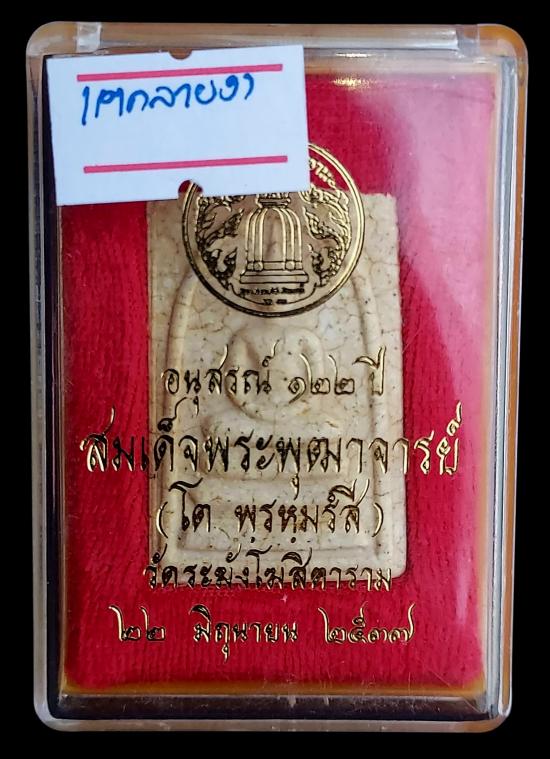 แตกลายงา
อนุสรณ์ ๑๒๒ ปี
สมเด็จพระพุฒาจารย์
(โต พฺรหฺมรํสี)
วัดระฆังโฆสิตาราม
๒๒ มิถุนายน ๒๕๓๗